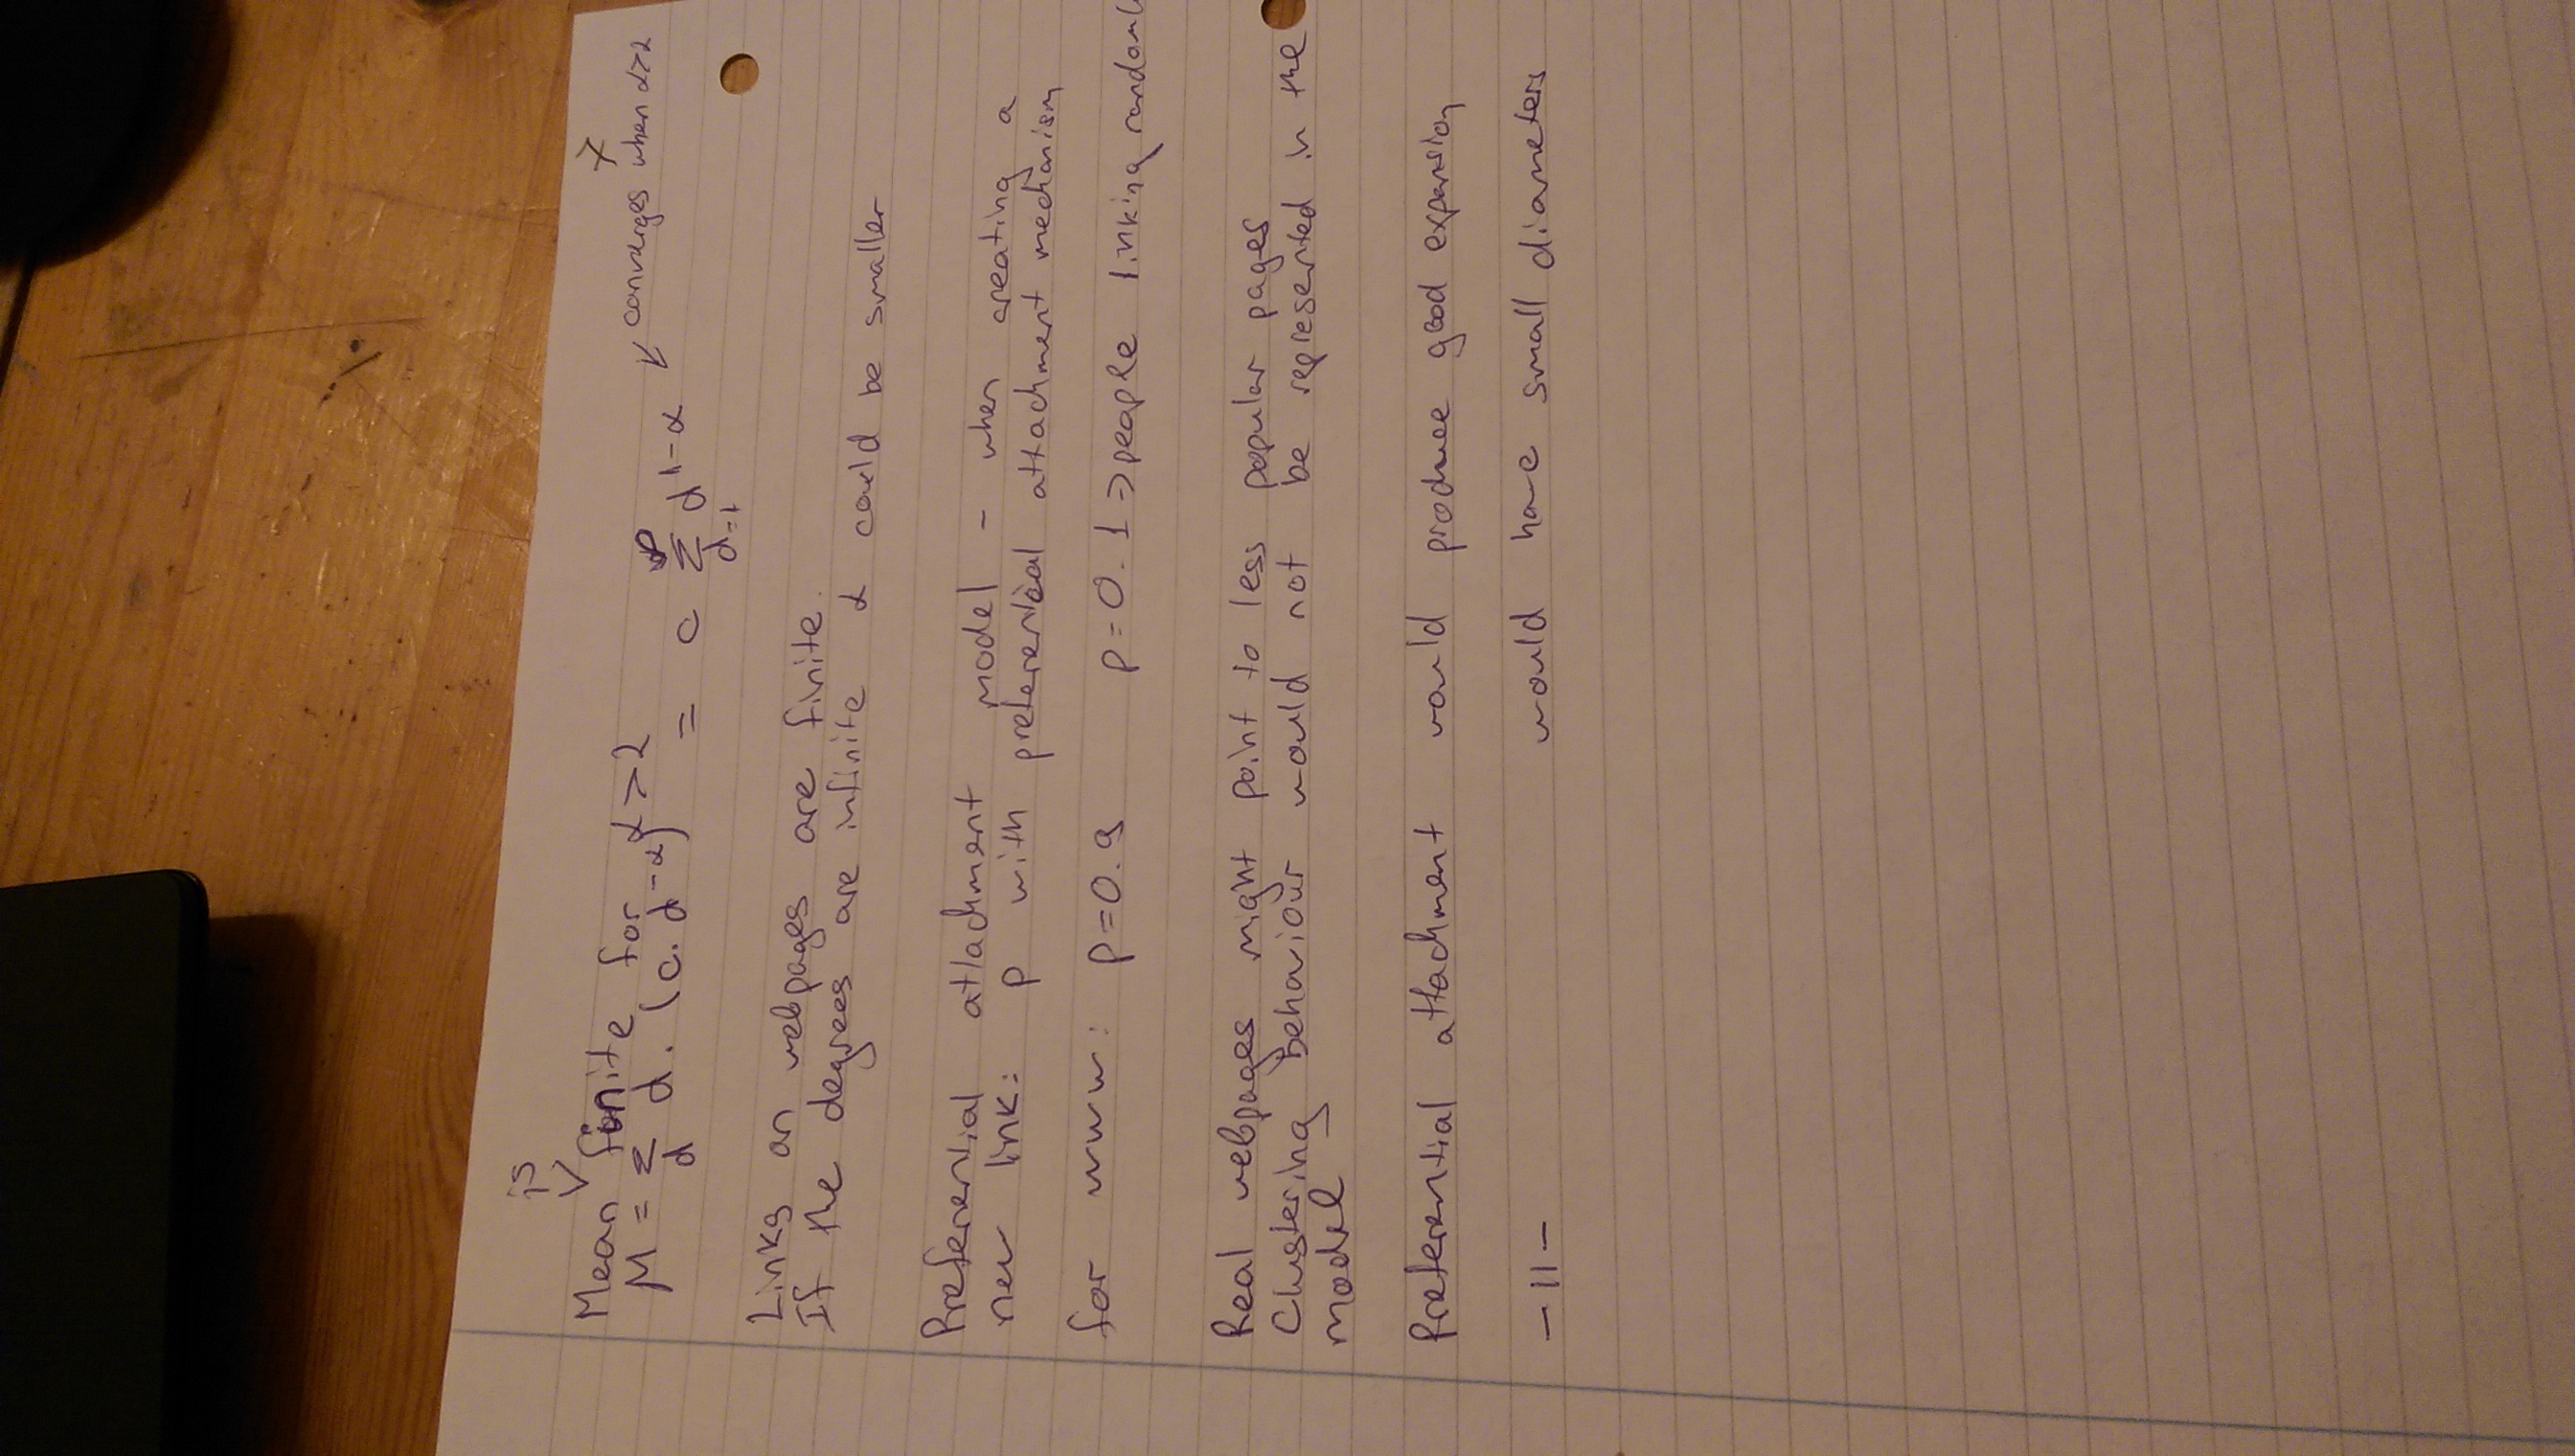 is
Mean finite for α>2
μ = Σ d · (c · d^-α) = c Σ d^1-α ↙ converges when α>2
d d=1 ∞
Links on webpages are finite.
If the degrees are infinite α could be smaller
Preferential attachment model – when creating a
new link: p with preferential attachment mechanism
for www: p=0.9 p=0.1 => people linking randoml
Real webpages might point to less popular pages
Clustering behaviour would not be represented in the
model
Preferential attachment would produce good expansion
-11- would have small diameters